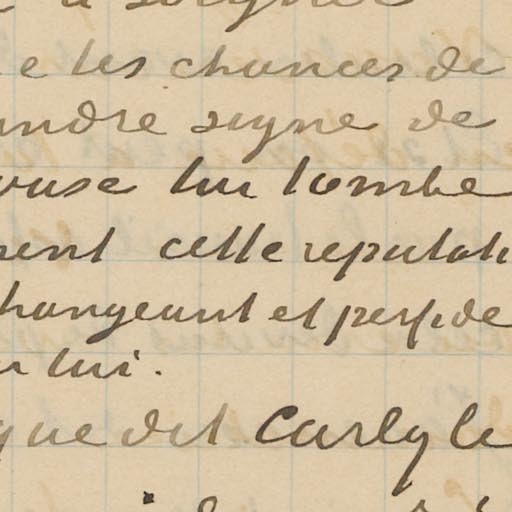 a soigner
e les chances de
indre signe de
ouse lui tombe
ment cette reputati
hangeant et perfide
n lui.
que dit Carlyle